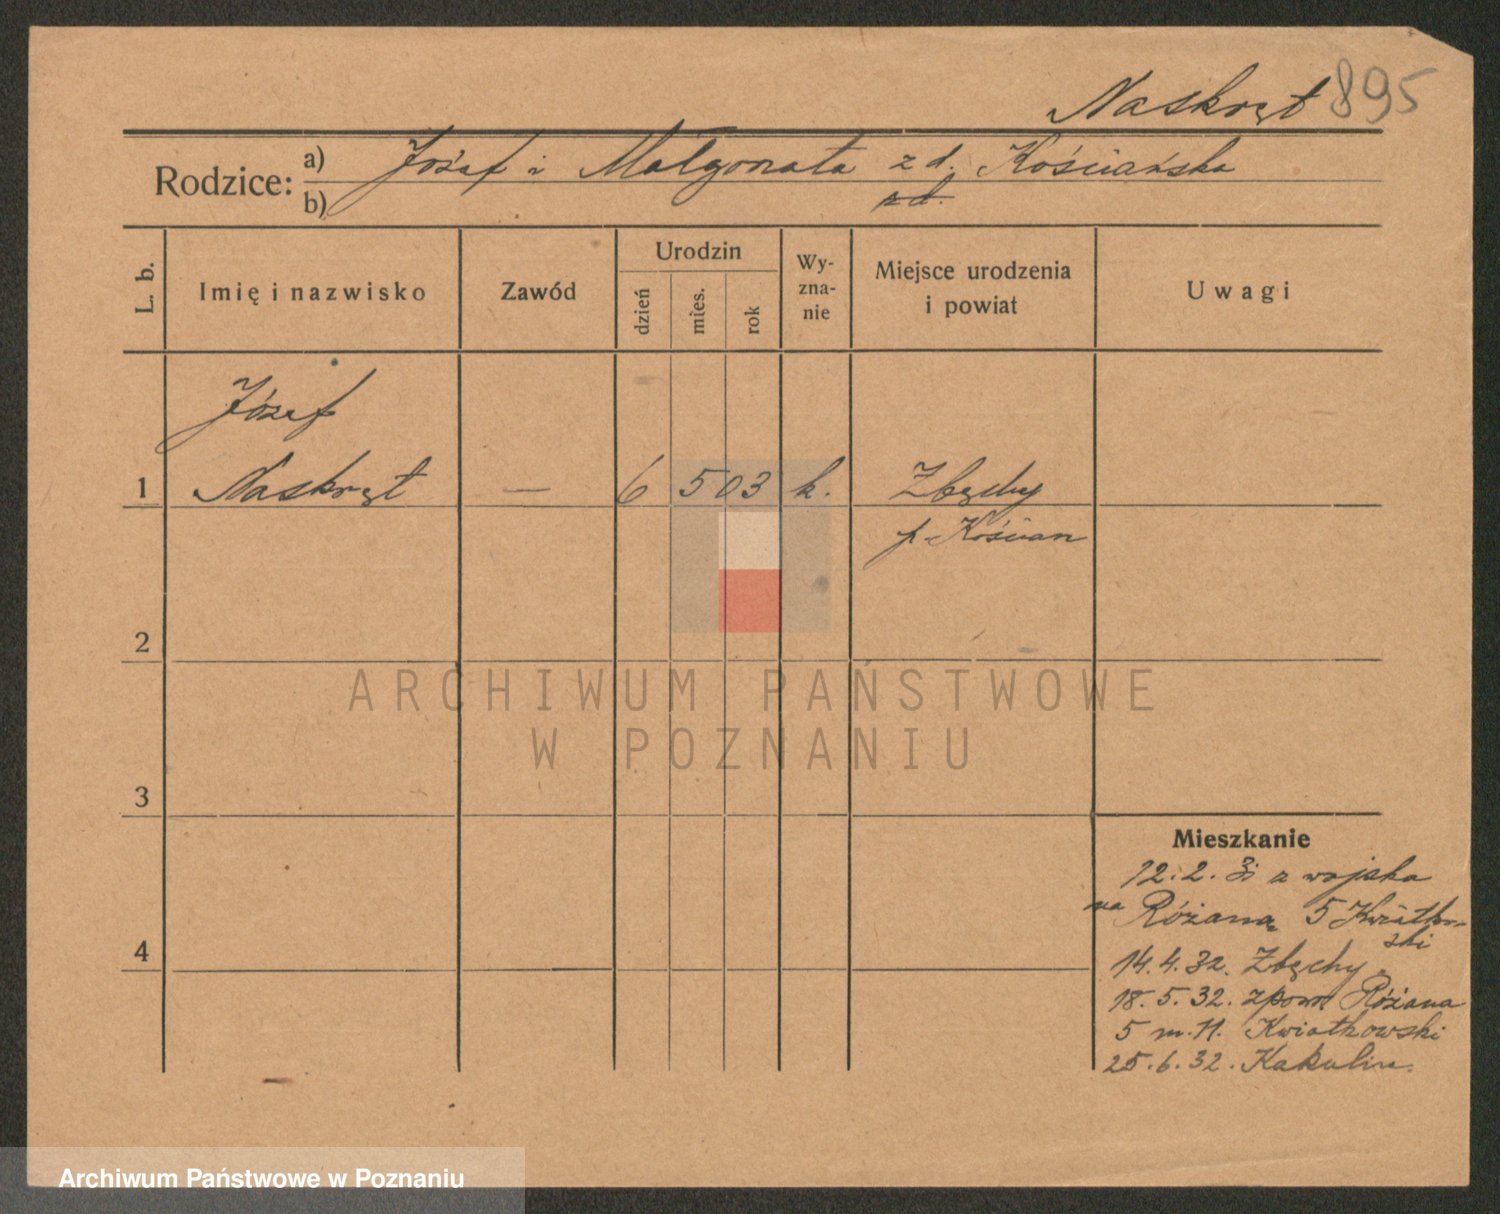 Naskręt 895
Rodzice: a) Józef i Małgorzata z d. Kościańska
b) z d.
L. b.
Imię i nazwisko
Zawód
Urodzin
dzień
mies.
rok
Wy-
zna-
nie
Miejsce urodzenia
i powiat
Uwagi
Józef
1 Naskręt — 6 5 03 k. Zbęchy
p. Kościan
2
3
4
Mieszkanie
12. 2. 31 z wojska
na Różaną 5 Kwiatkow-
ski
14. 4. 32. Zbęchy
18. 5. 32. zpow Różana
5 m. 11. Kwiatkowski
25. 6. 32.
ARCHIWUM PAŃSTWOWE
W POZNANIU
Archiwum Państwowe w Poznaniu